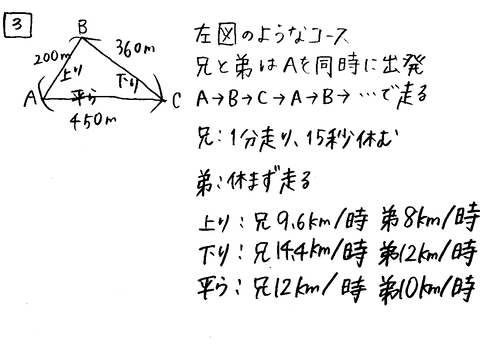 3
B
200m
360m
上り
下り
A
平ら
C
450m
左図のようなコース
兄と弟はAを同時に出発
A→B→C→A→B→…で走る
兄:1分走り、15秒休む
弟:休まず走る
上り:兄9.6km/時 弟8km/時
下り:兄14.4km/時 弟12km/時
平ら:兄12km/時 弟10km/時